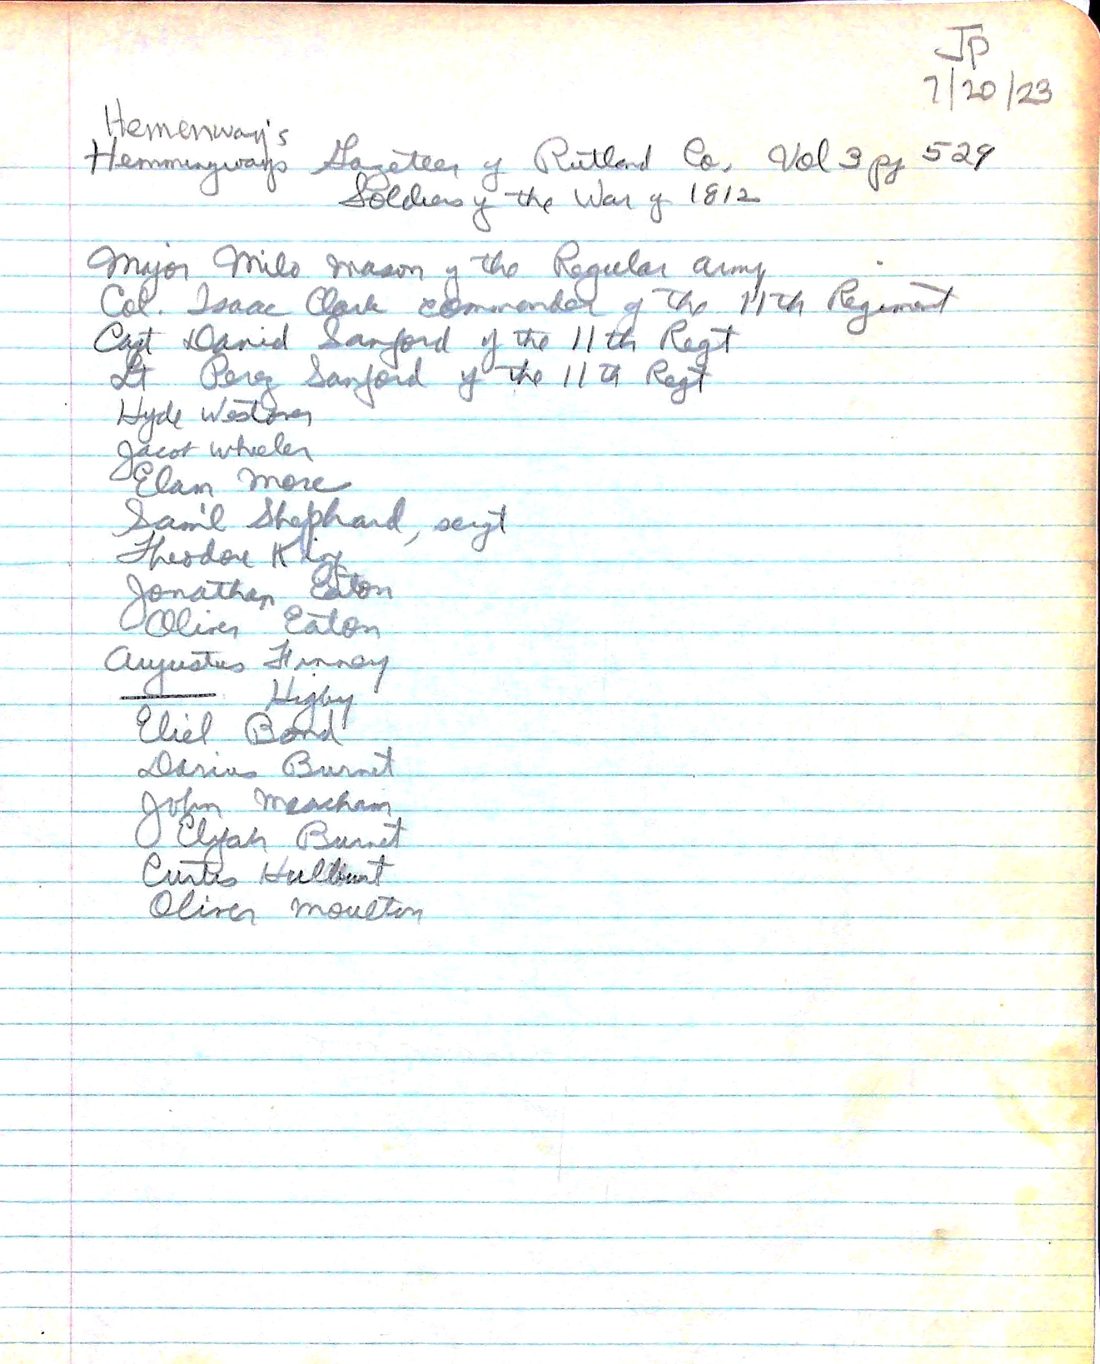 Jp
7/20/23
Hemenway's
Hemmingways Gazeteer of Rutland Co. Vol 3 pg 529
Soldiers of the War of 1812
Major Milo Mason of the Regular army
Col. Isaac Clark commander of the 11th Regiment
Capt David Sanford of the 11th Regt
Lt Perez Sanford of the 11th Regt
Hyde Westover
Jacob Wheeler
Elam More
Sam'l Shephard, sergt
Theodore King
Jonathan Eaton
Oliver Eaton
Augustus Finney
——— Higby
Eliel Bond
Darius Burnet
John Meacham
Elijah Burnet
Curtis Hulburt
Oliver Moulton